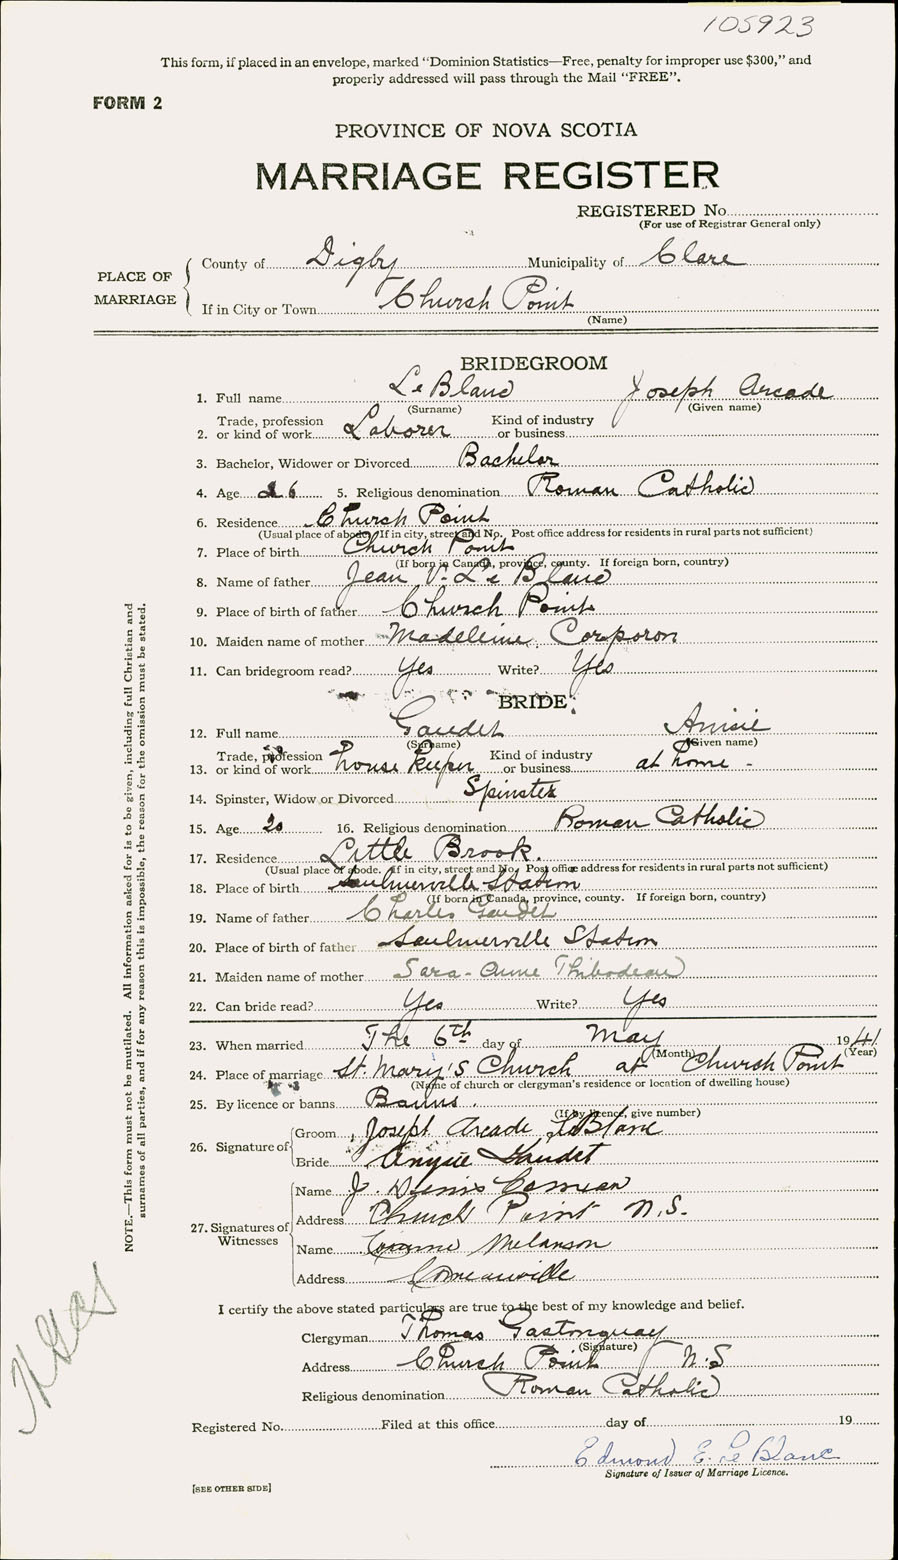 105923
This form, if placed in an envelope, marked "Dominion Statistics—Free, penalty for improper use $300," and
properly addressed will pass through the Mail "FREE".
FORM 2
PROVINCE OF NOVA SCOTIA
MARRIAGE REGISTER
REGISTERED No.
(For use of Registrar General only)
PLACE OF MARRIAGE
County of Digby Municipality of Clare
If in City or Town Church Point
(Name)
BRIDEGROOM
1. Full name LeBlanc Joseph Arcade
(Surname) (Given name)
2. Trade, profession or kind of work Laborer Kind of industry or business
3. Bachelor, Widower or Divorced Bachelor
4. Age 26 5. Religious denomination Roman Catholic
6. Residence Church Point
(Usual place of abode. If in city, street and No. Post office address for residents in rural parts not sufficient)
7. Place of birth Church Point
(If born in Canada, province, county. If foreign born, country)
8. Name of father Jean V. LeBlanc
9. Place of birth of father Church Point
10. Maiden name of mother Madeleine Corporon
11. Can bridegroom read? Yes Write? Yes
BRIDE
12. Full name Gaudet Anisie
(Surname) (Given name)
13. Trade, profession or kind of work house keeper Kind of industry or business at home -
14. Spinster, Widow or Divorced Spinster
15. Age 20 16. Religious denomination Roman Catholic
17. Residence Little Brook.
(Usual place of abode. If in city, street and No. Post office address for residents in rural parts not sufficient)
18. Place of birth Saulnierville Station
(If born in Canada, province, county. If foreign born, country)
19. Name of father Charles Gaudet
20. Place of birth of father Saulnierville Station
21. Maiden name of mother Sara-Anne Thibodeau
22. Can bride read? Yes Write? Yes
23. When married The 6th day of May 1941
(Month) (Year)
24. Place of marriage St. Mary's Church at Church Point
(Name of church or clergyman's residence or location of dwelling house)
25. By licence or banns Banns.
(If by licence, give number)
26. Signature of Groom Joseph Arcade LeBlanc
Bride Anysie Gaudet
27. Signatures of Witnesses
Name J. Denis Comeau
Address Church Point N.S.
Name Melanson
Address Comeauville
I certify the above stated particulars are true to the best of my knowledge and belief.
Clergyman Thomas Gastonguay
(Signature)
Address Church Point N.S
Religious denomination Roman Catholic
Registered No. Filed at this office day of 19
Edmond E. Le Blanc
Signature of Issuer of Marriage Licence.
[SEE OTHER SIDE]
NOTE.—This form must not be mutilated. All information asked for is to be given, including full Christian and
surnames of all parties, and if for any reason this is impossible, the reason for the omission must be stated.